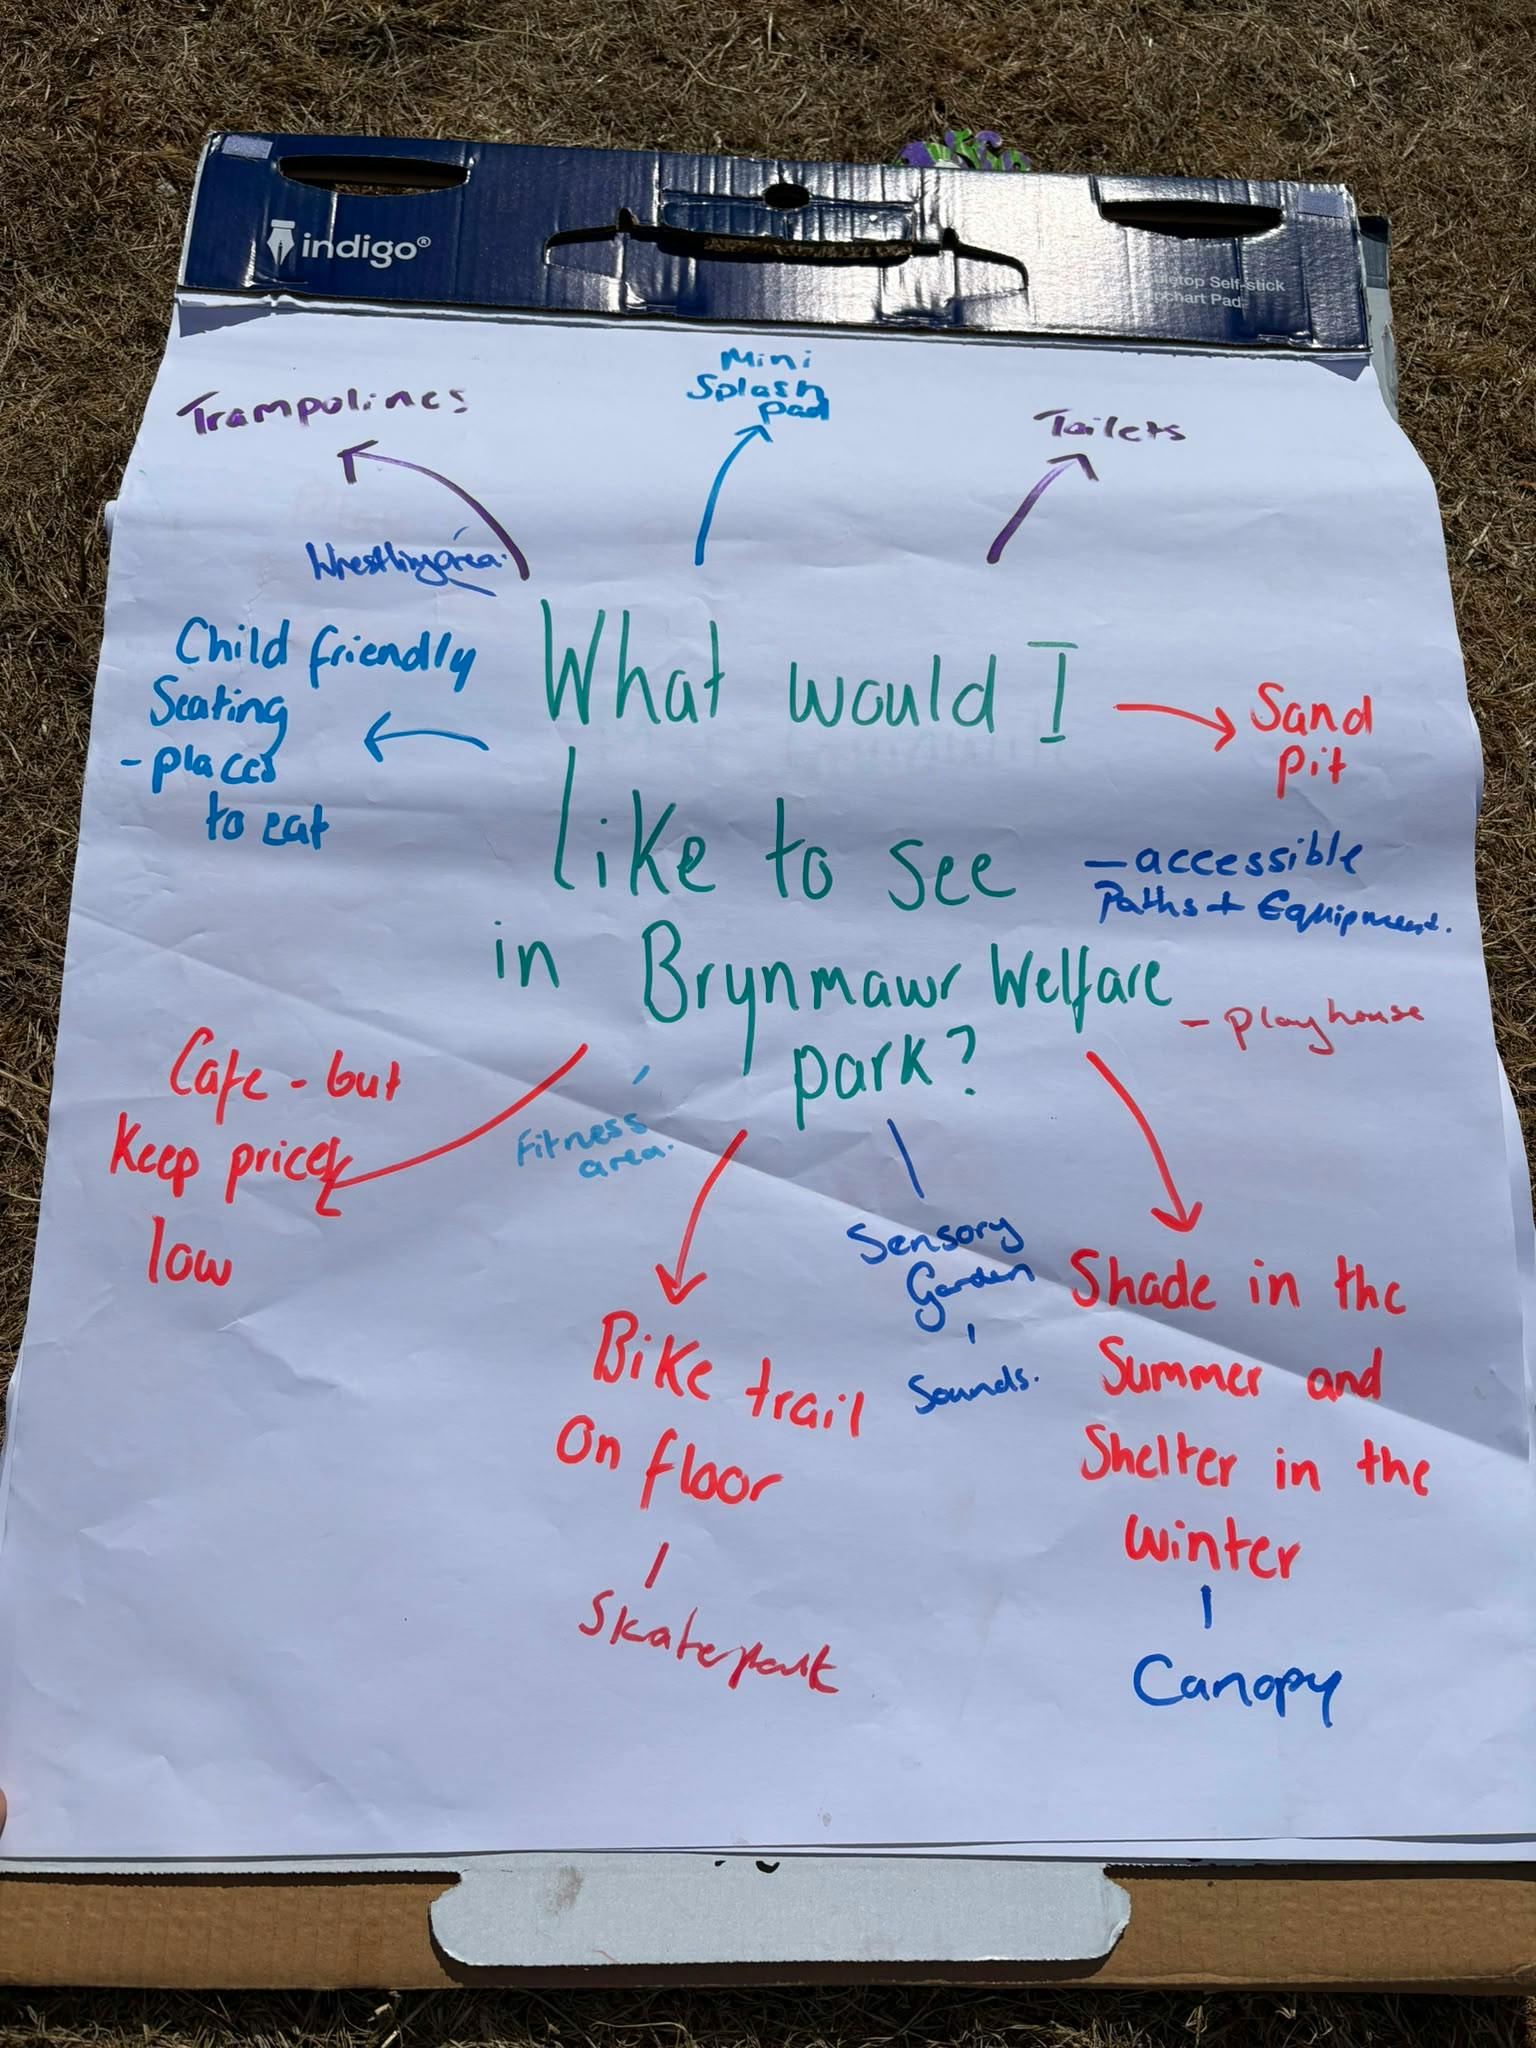 indigo®
Tabletop Self-stick
Flipchart Pad
Trampolines
Mini
Splash
Pad
Toilets
Wrestling area.
Child friendly
Seating
- places
to eat
What would I
like to see
in Brynmawr Welfare
park?
Sand
pit
- accessible
Paths + Equipment.
- playhouse
Cafe - but
keep prices
low
Fitness
area.
Bike trail
on floor
Skatepark
Sensory
Garden
Sounds.
Shade in the
Summer and
Shelter in the
winter
Canopy